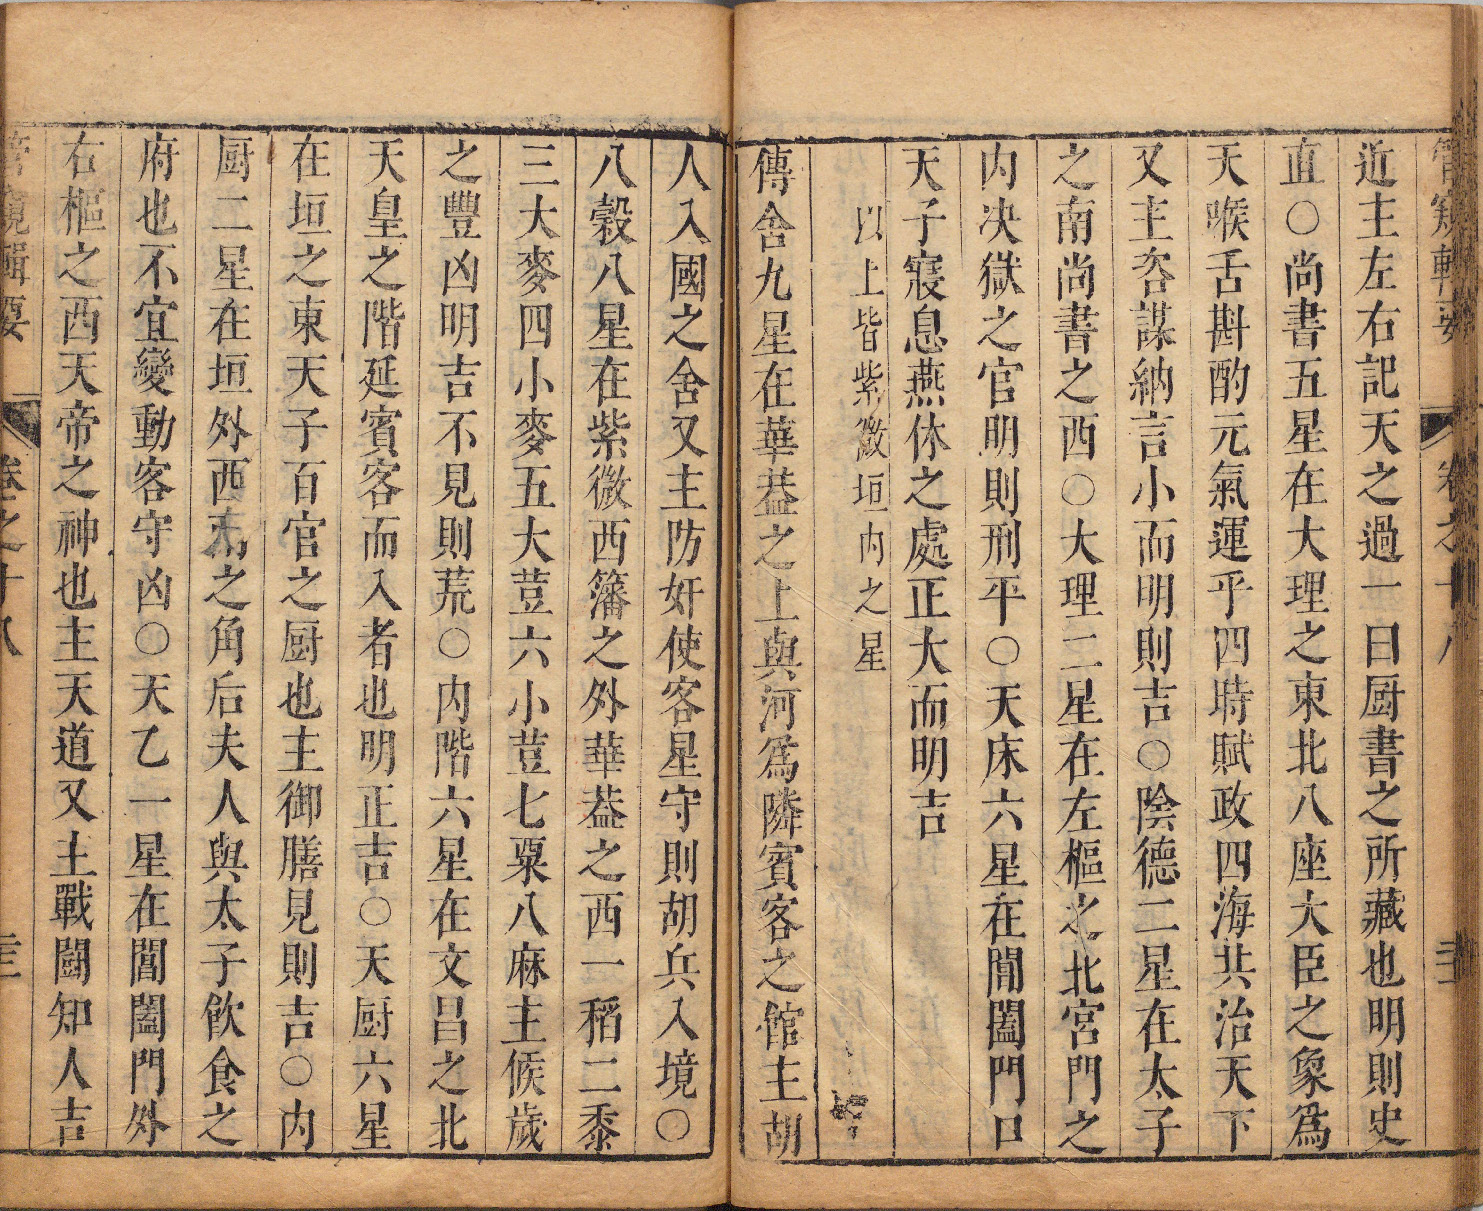 管窺輯要 卷之十八
近主左右記天之過一曰厨書之所藏也明則史
直○尚書五星在大理之東北八座大臣之象爲
天喉舌斟酌元氣運乎四時賦政四海共治天下
又主咨謀納言小而明明則吉○陰德二星在太子
之南尚書之西○大理二星在左樞之北宮門之
内决獄之官明則刑平○天床六星在閶闔門口
天子寢息燕休之處正大而明吉
以上皆紫微垣内之星
傳舍九星在華葢之上與河爲隣賓客之館主胡
人入國之舍又主防奸使客星守則胡兵入境○
八穀八星在紫微西籓之外華葢之西一稻二黍
三大麥四小麥五大荳六小荳七粟八麻主候歲
之豐凶明吉不見則荒○内階六星在文昌之北
天皇之階延賓客而入者也明正吉○天厨六星
在垣之東天子百官之厨也主御膳見則吉○内
厨二星在垣外西南之角后夫人與太子飲食之
府也不宜變動客守凶○天乙一星在閶闔門外
右樞之西天帝之神也主天道又主戰闘知人吉
管窺輯要 卷之十八